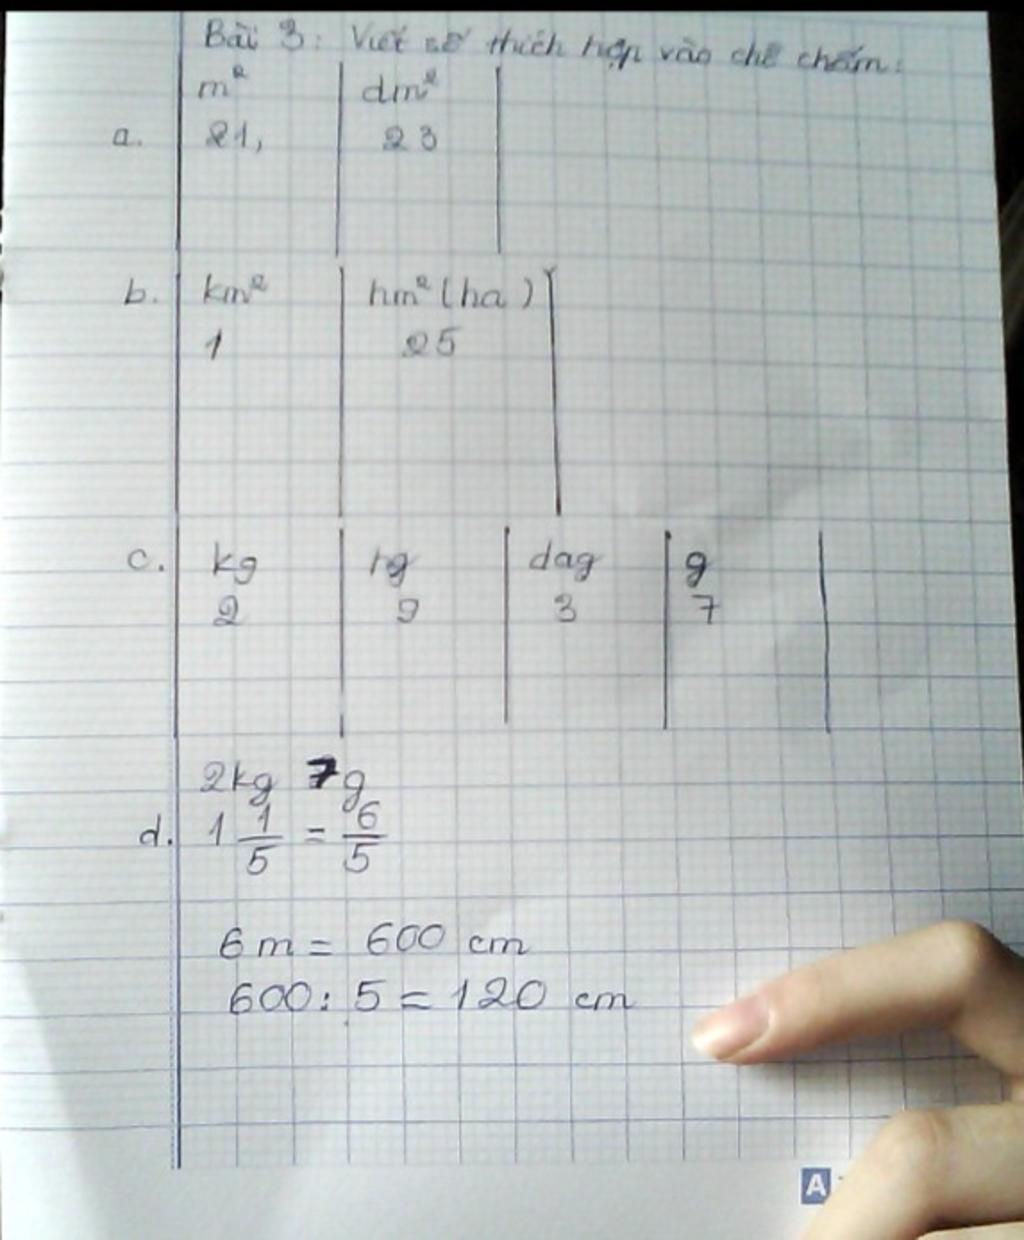 Bài 3: Viết số thích hợp vào chỗ chấm:
m² dm²
a. 21, 23
b. km² hm² (ha)
1 25
c. kg hg dag g
2 9 3 7
2kg 7g
d. 1 1/5 = 6/5
6m = 600 cm
600 : 5 = 120 cm
A